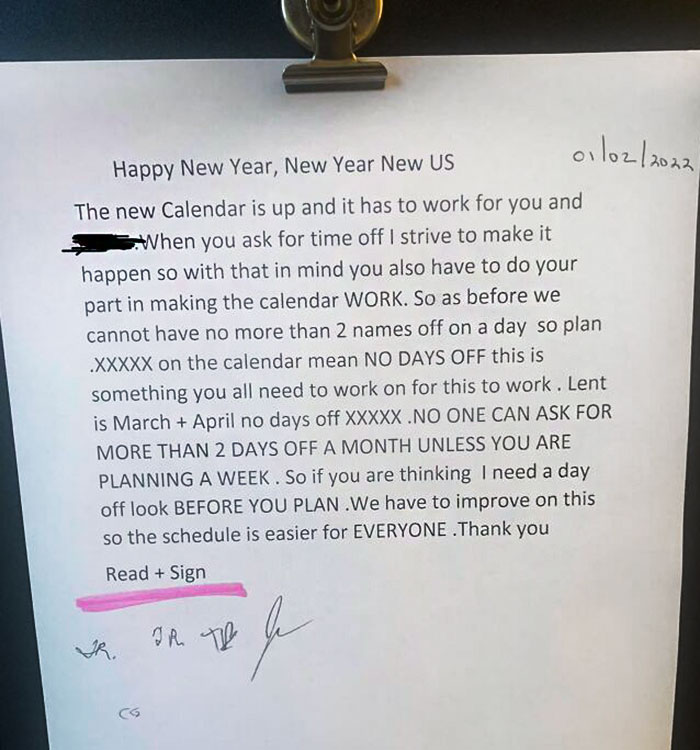 Happy New Year, New Year New US
01/02/2022
The new Calendar is up and it has to work for you and
.When you ask for time off I strive to make it
happen so with that in mind you also have to do your
part in making the calendar WORK. So as before we
cannot have no more than 2 names off on a day so plan
.XXXXX on the calendar mean NO DAYS OFF this is
something you all need to work on for this to work . Lent
is March + April no days off XXXXX .NO ONE CAN ASK FOR
MORE THAN 2 DAYS OFF A MONTH UNLESS YOU ARE
PLANNING A WEEK . So if you are thinking I need a day
off look BEFORE YOU PLAN .We have to improve on this
so the schedule is easier for EVERYONE .Thank you
Read + Sign
JR. JR.
CG